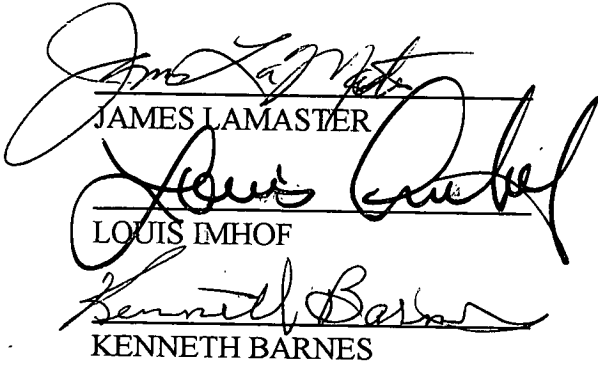 James LaMaster
JAMES LAMASTER
Louis Imhof
LOUIS IMHOF
Kenneth Barnes
KENNETH BARNES